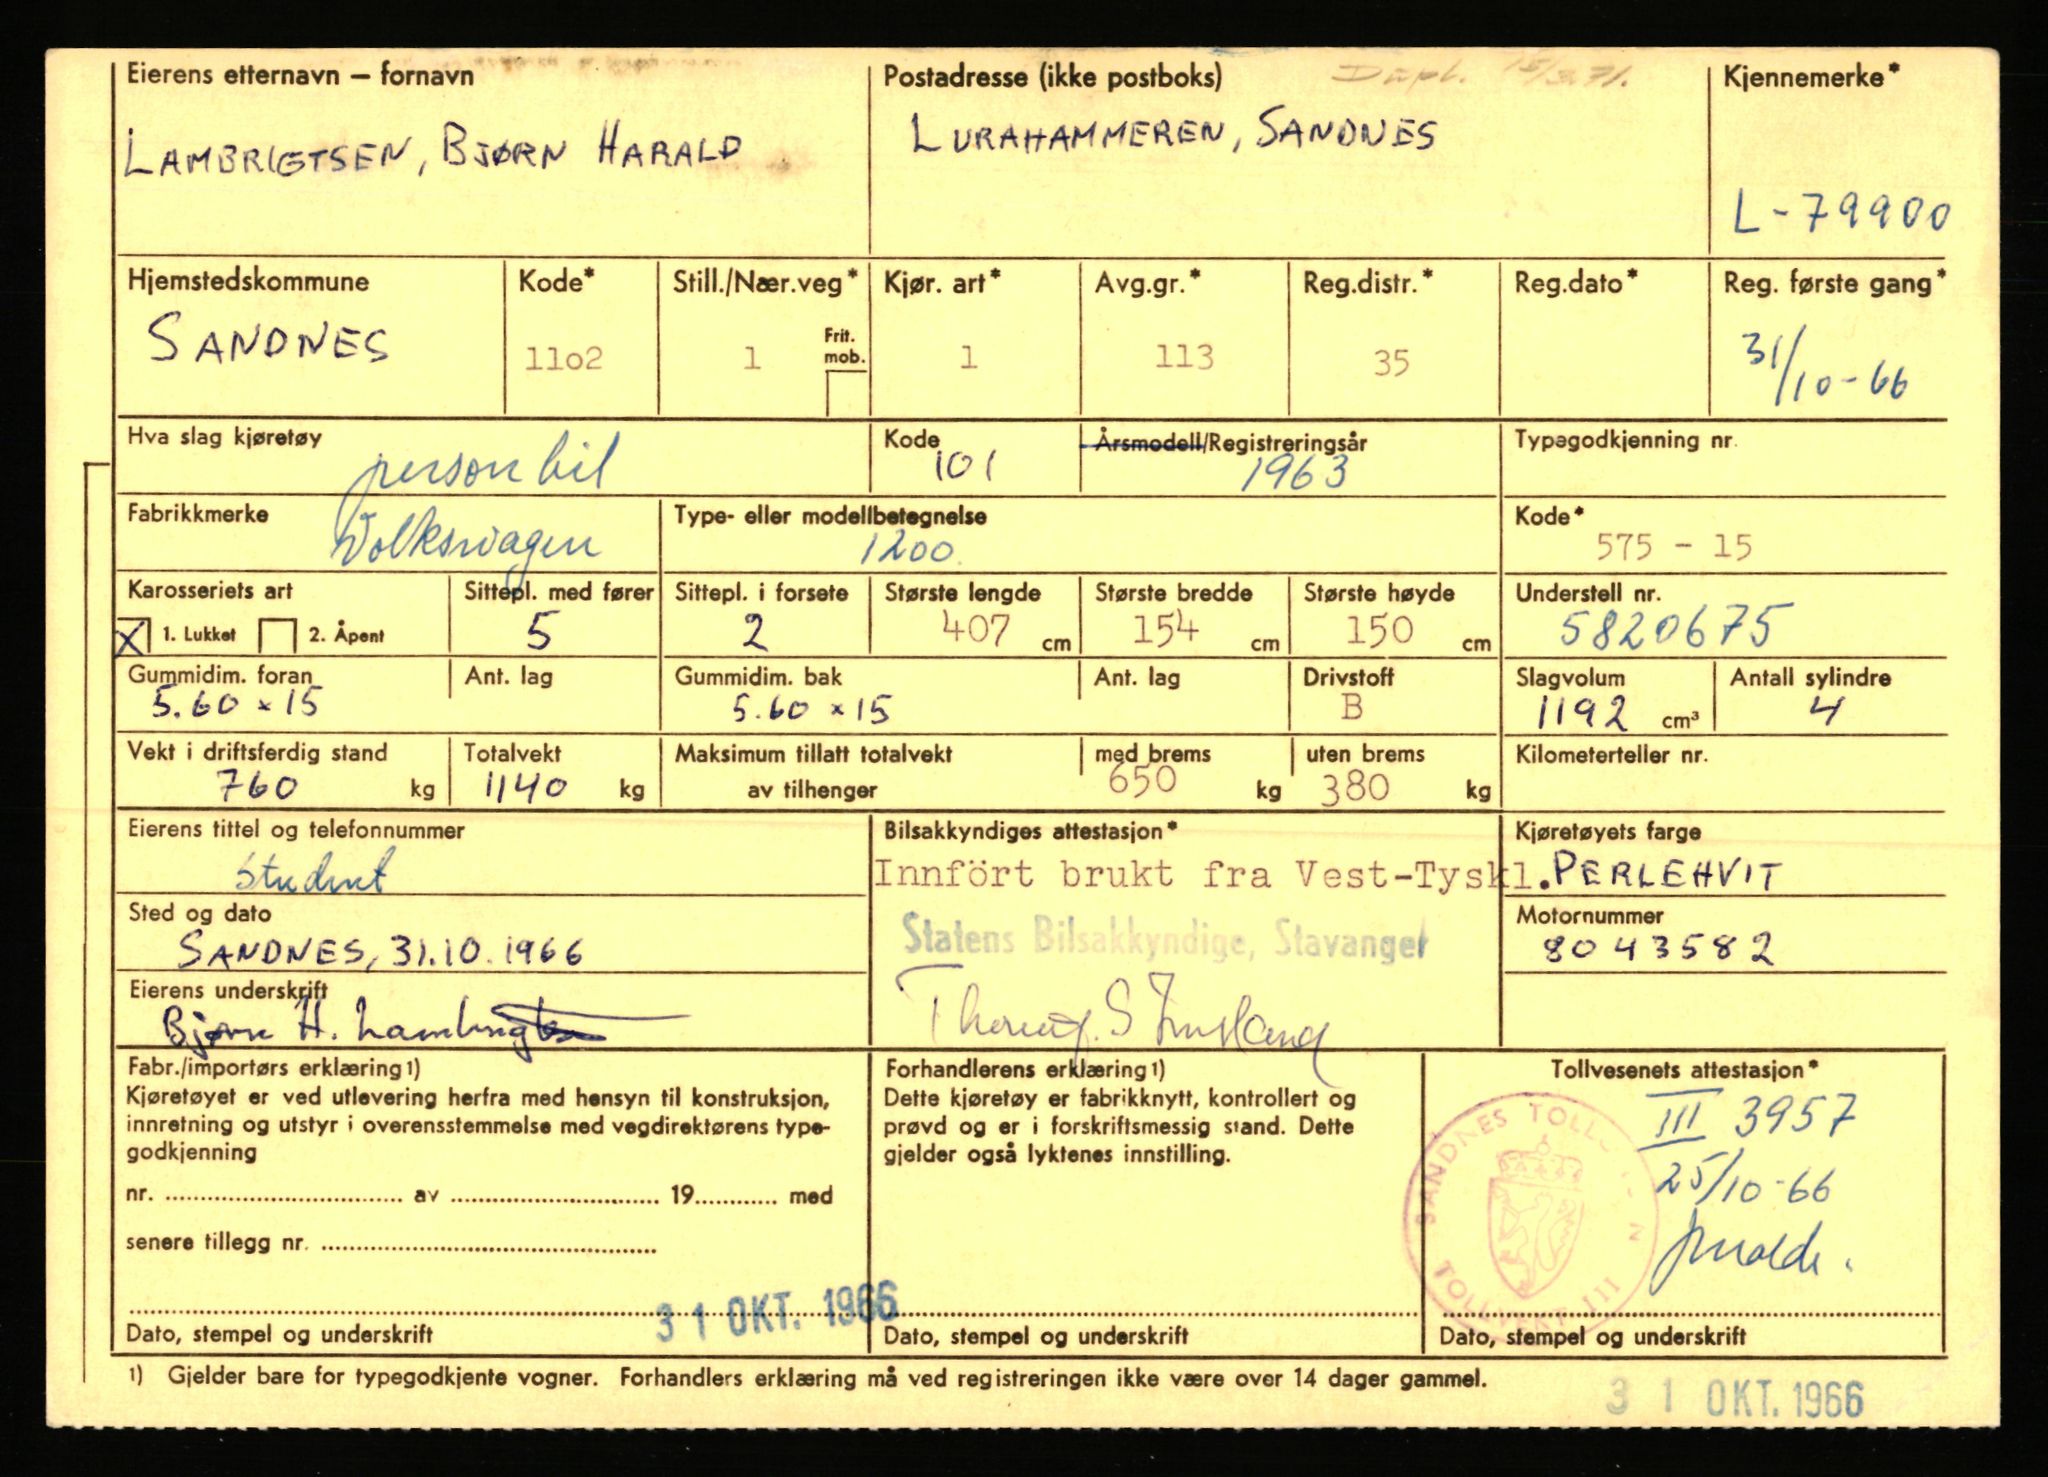 Eierens etternavn – fornavn
LAMBRIGTSEN, BJØRN HARALD
Postadresse (ikke postboks)
Dupl. 15/3.71.
LURAHAMMEREN, SANDNES
Kjennemerke*
L-79900
Hjemstedskommune
SANDNES
Kode*
11o2
Still./Nær.veg*
1
Frit.
mob.
Kjør. art*
1
Avg.gr.*
113
Reg.distr.*
35
Reg.dato*
Reg. første gang*
31/10-66
Hva slag kjøretøy
personbil
Kode
101
Årsmodell/Registreringsår
1963
Typegodkjenning nr.
Fabrikkmerke
Volkswagen
Type- eller modellbetegnelse
1200
Kode*
575 - 15
Karosseriets art
X 1. Lukket 2. Åpent
Sittepl. med fører
5
Sittepl. i forsete
2
Største lengde
407 cm
Største bredde
154 cm
Største høyde
150 cm
Understell nr.
5820675
Gummidim. foran
5.60 x 15
Ant. lag
Gummidim. bak
5.60 x 15
Ant. lag
Drivstoff
B
Slagvolum
1192 cm³
Antall sylindre
4
Vekt i driftsferdig stand
760 kg
Totalvekt
1140 kg
Maksimum tillatt totalvekt
av tilhenger
med brems
650 kg
uten brems
380 kg
Kilometerteller nr.
Eierens tittel og telefonnummer
student
Bilsakkyndiges attestasjon*
Innført brukt fra Vest-Tyskl.
Statens Bilsakkyndige, Stavanger
Kjøretøyets farge
PERLEHVIT
Sted og dato
SANDNES, 31.10.1966
Motornummer
8043582
Eierens underskrift
Bjørn H. Lambrigtsen
Fabr./importørs erklæring 1)
Kjøretøyet er ved utlevering herfra med hensyn til konstruksjon,
innretning og utstyr i overensstemmelse med vegdirektørens type-
godkjenning
nr. .................... av .................... 19........ med
senere tillegg nr. ........................................
31 OKT. 1966
Dato, stempel og underskrift
Forhandlerens erklæring 1)
Dette kjøretøy er fabrikknytt, kontrollert og
prøvd og er i forskriftsmessig stand. Dette
gjelder også lyktenes innstilling.
Dato, stempel og underskrift
Tollvesenets attestasjon*
III 3957
25/10-66
SANDNES TOLL
TOLLVEKT III
Dato, stempel og underskrift
1) Gjelder bare for typegodkjente vogner. Forhandlers erklæring må ved registreringen ikke være over 14 dager gammel.
31 OKT. 1966